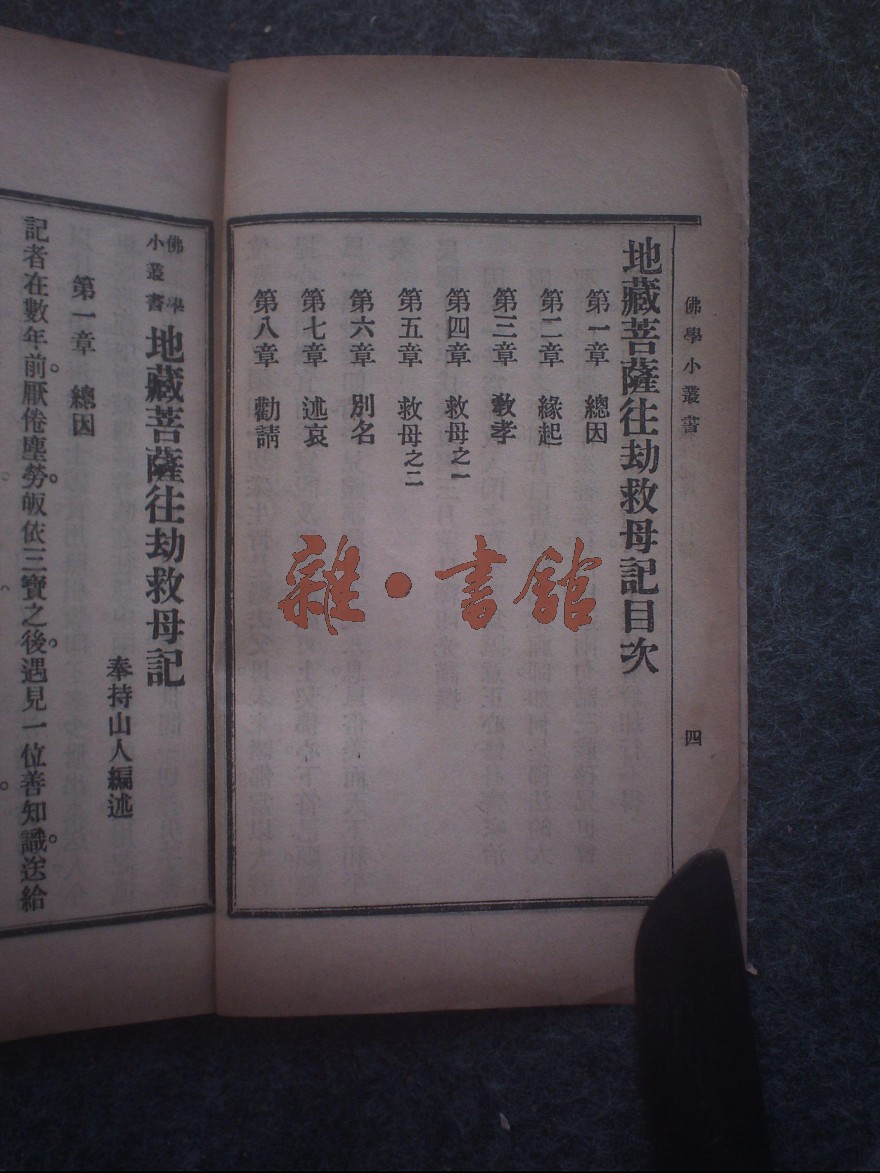 佛學小叢書
四
地藏菩薩往劫救母記目次
第一章 總因
第二章 緣起
第三章 教孝
第四章 救母之一
第五章 救母之二
第六章 別名
第七章 述哀
第八章 勸請
雜·書館
佛學小叢書 地藏菩薩往劫救母記
奉持山人編述
第一章 總因
記者在數年前。厭倦塵勞。皈依三寶之後。遇見一位善知識。送給